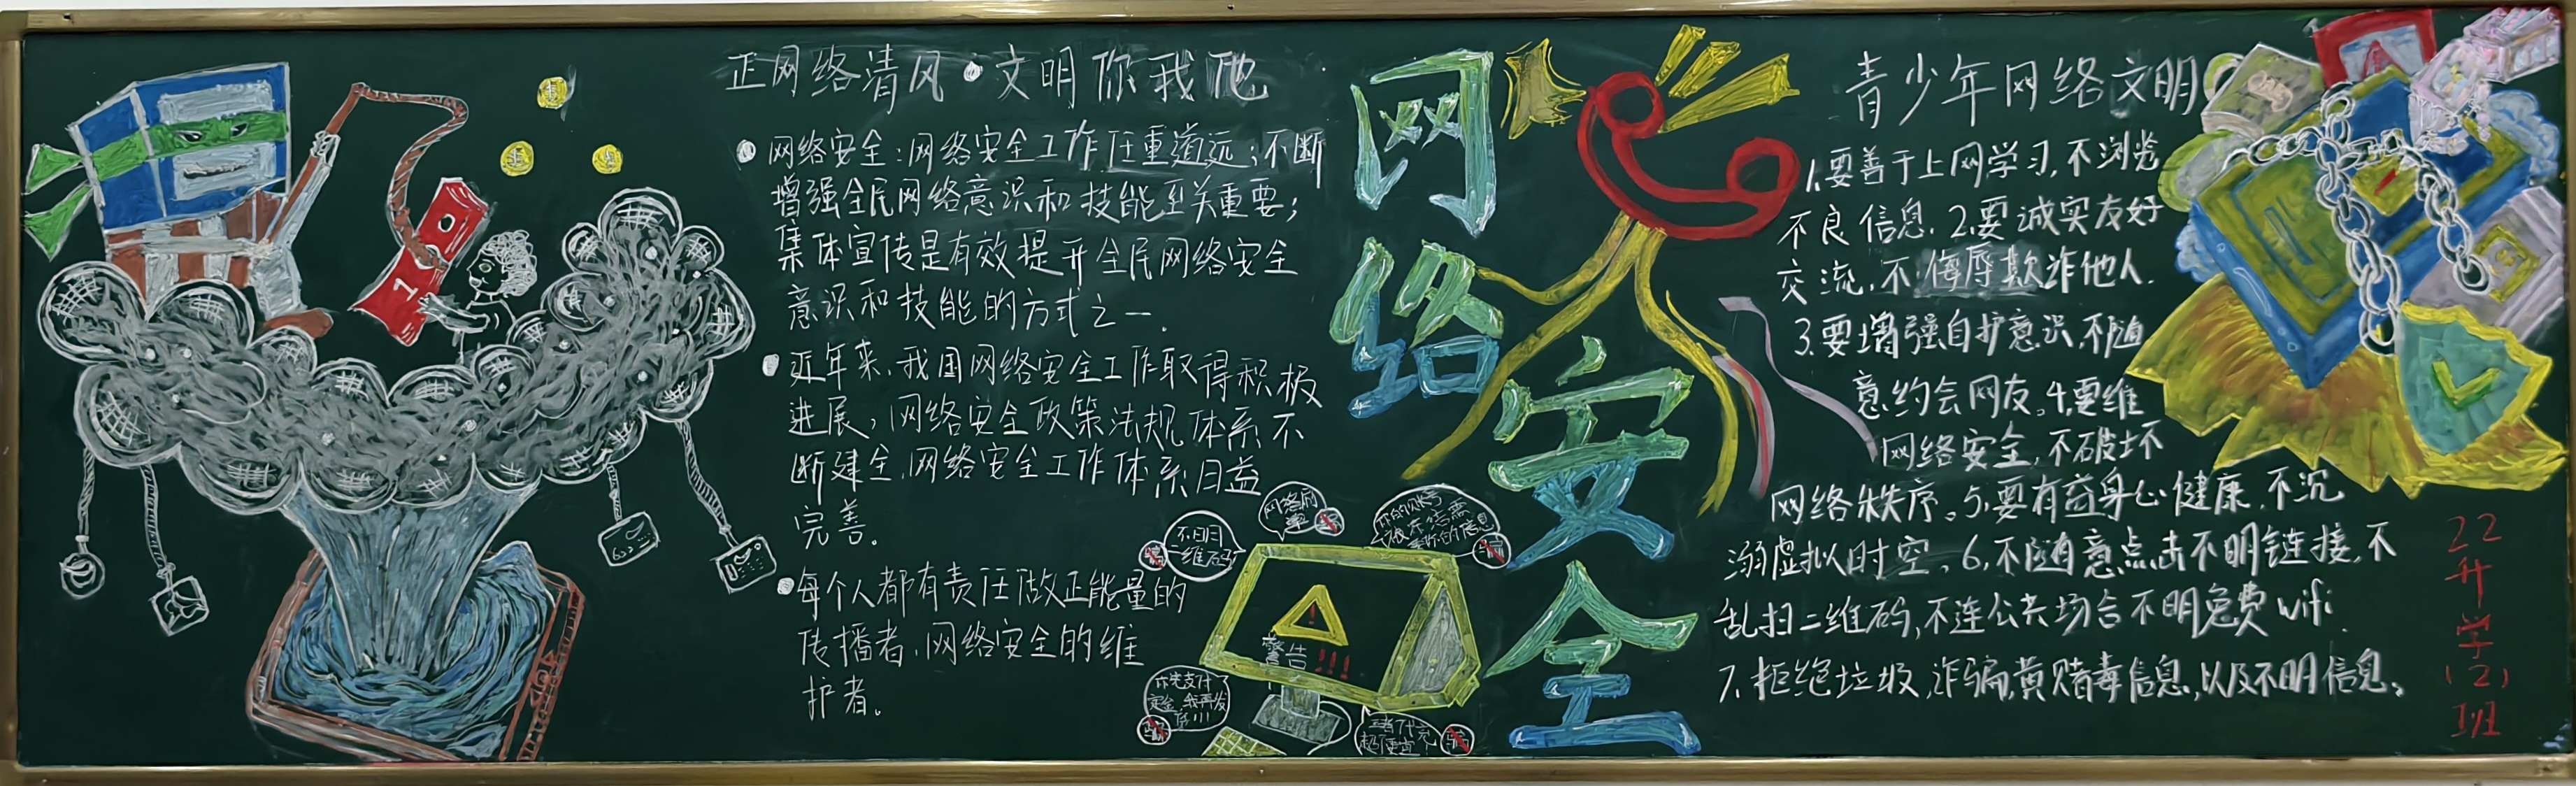 正网络清风·文明你我他
网络安全:网络安全工作任重道远;不断
增强全民网络意识和技能至关重要;
集体宣传是有效提升全民网络安全
意识和技能的方式之一.
近年来,我国网络安全工作取得积极
进展,网络安全政策法规体系不
断建全,网络安全工作体系日益
完善。
每个人都有责任做正能量的
传播者,网络安全的维
护者。
网
络
安
全
不明
二维码
网络刷
单
警告!!!
你先支付
定金,我再发
货!!!
青少年网络文明
1.要善于上网学习,不浏览
不良信息.2.要诚实友好
交流,不侮辱欺诈他人.
3.要增强自护意识,不随
意约会网友。4.要维
网络安全,不破坏
网络秩序。5.要有益身心健康,不沉
溺虚拟时空。6.不随意点击不明链接,不
乱扫二维码,不连公共场合不明免费wifi.
7.拒绝垃圾,诈骗,黄赌毒信息,以及不明信息。
22
升
学
(2)
班